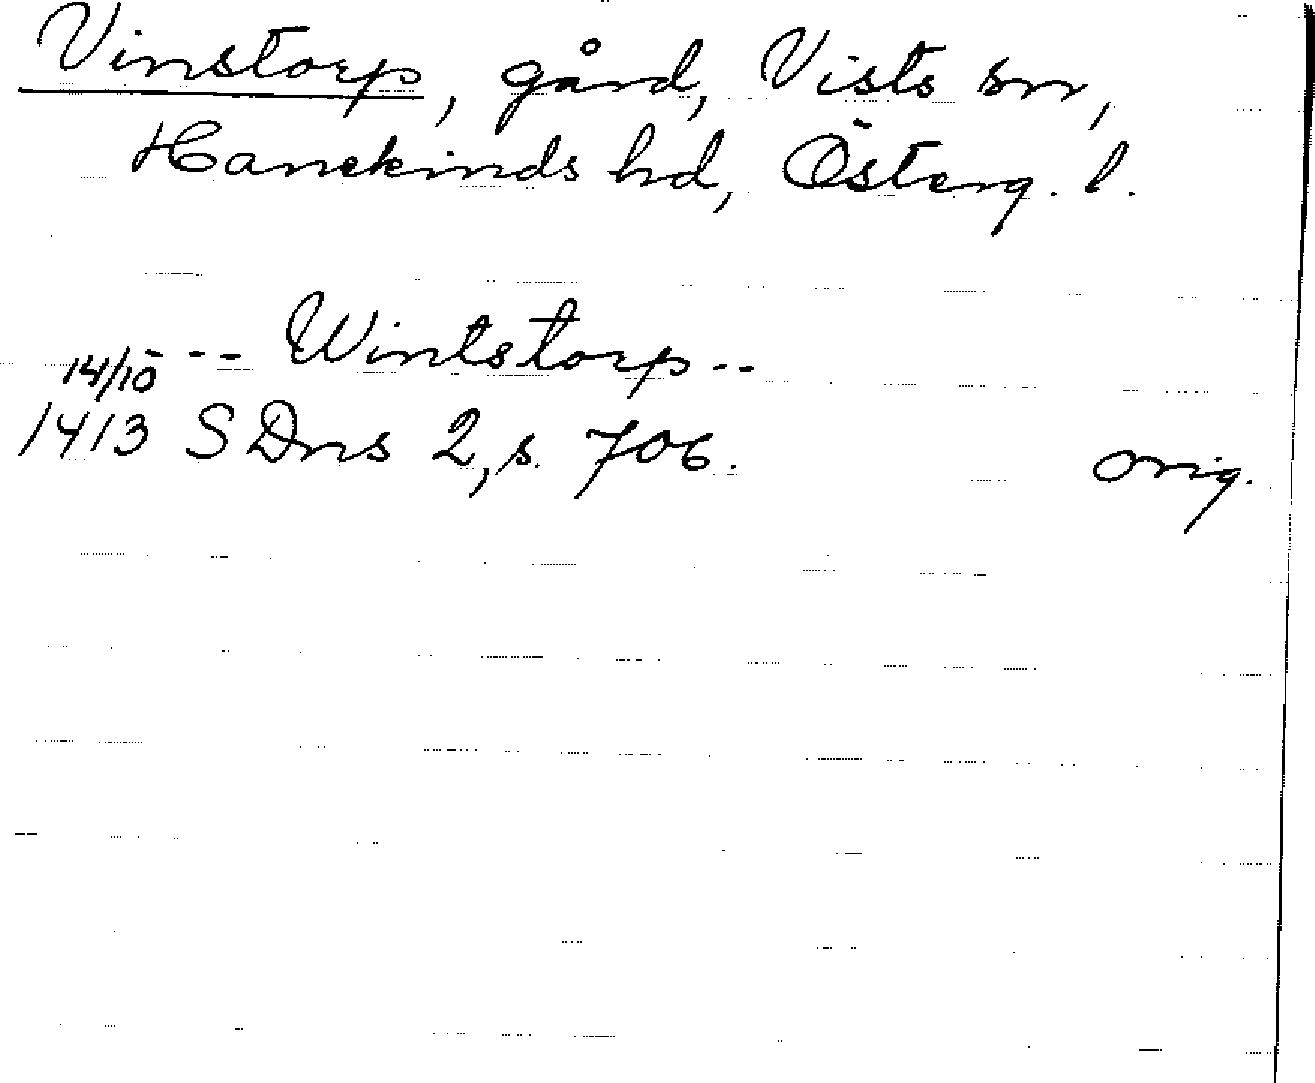 Vinstorp, gård, Vists sn,
Hanekinds hd, Österg. l.
--- Wintstorp--
14/10
1413 SDns 2, s. 706. orig.